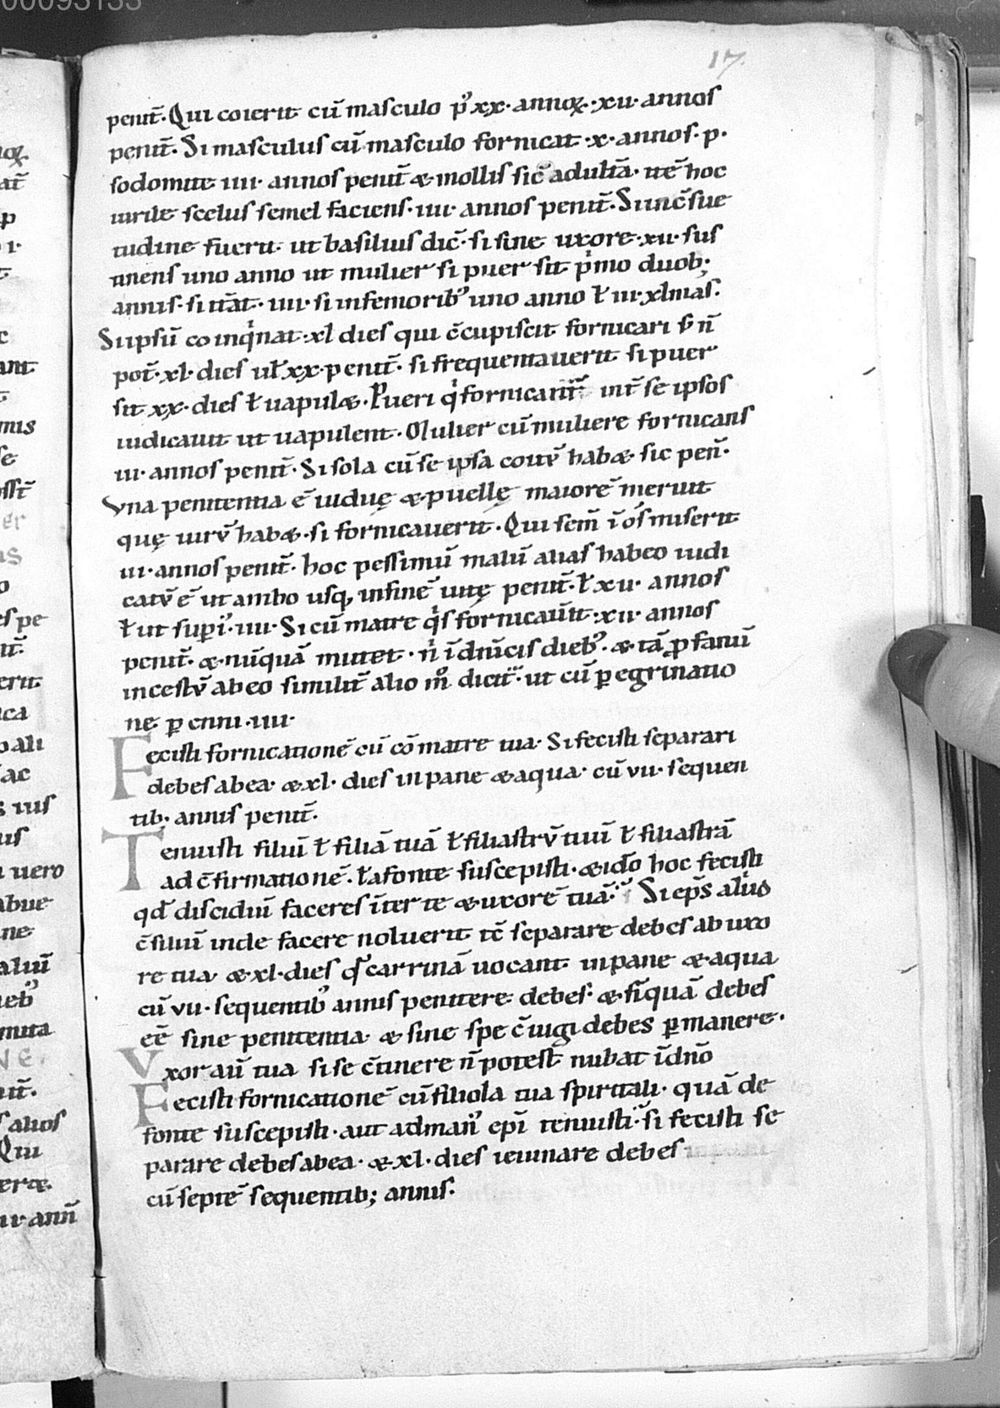 00093133
17.
penit̄. Qui coierit cū masculo p̾ xx. annoꝝ. xii. annos
penit̄. Si masculus cū masculo fornicat. x. annos. p.
sodomite iiii. annos penit̄ & mollis sic̄ adult̄a. ite̅ hoc
uirile scelus semel faciens. iiii. annos penit̄. Si in c̄sue
tudine fuerit. ut basilius dic̄. si sine uxore. xii. sus
tinens uno anno ut mulier si puer sit pͥmo duob;
annis. si it̄at. iiii. si in femorib᾽ uno anno ł iii. xlmas.
Si ipsū coinqͥnat. xl dies qui c̄cupiscit fornicari s̄ n̄
pot̄. xl. dies uł xx. penit̄. si frequentauerit si puer
sit xx. dies ł uapul&. Pueri qͥ fornicant̄ int̄ se ipsos
iudicauit ut uapulent. Mulier cū muliere fornicans
iii. annos penit̄. Si sola cū se ipsa coitū hab& sic pen̄.
Vna penitentia ē uiduę & puellę maiorē meruit
quę uirū hab& si fornicauerit. Qui sem̄ ī os miserit
iii. annos penit̄. hoc pessimū malū alias habeo iudi
catū ē ut ambo usq, in finē uitę penit̄. ł xii. annos
ł ut supͥ. iiii. Si cū matre qͥs fornicau̅it. xii. annos
penit̄. & nūquā mutet. nͥ ī dn̄icis dieb᾽. & tā ꝓfanū
incestū abeo similit̄ alio mͦ dicit̄. ut cū ꝑegrinatio
ne ꝑenni. iiii.
Fecisti fornicationē cū cōmatre tua. Si fecisti separari
debes ab ea. & xl. dies in pane & aqua. cū vii. sequen
tib; annis penit̄.
Tenuisti filiū ł filiā tuā ł filiastrū tuū ł filiastrā
ad c̄firmationē. ł a fonte suscepisti. & ido hoc fecisti
qd̄ discidiū faceres īter te & uxorē tuā. Si ep̄s aliud
c̄siliū inde facere noluerit tc̄ separare debes ab uxo
re tua & xl. dies qͦs carrinā uocant in pane & aqua
cū vii. sequentib᾽ annis penitere debes. & n̄quā debes
eē sine penitentia & sine spe c̄iugi debes ꝑmanere.
Vxor au̅ tua si se c̄tinere n̄ potest nubat ī dn̄o
Fecisti fornicationē cū filiola tua spiritali. quā de
fonte suscepisti. aut ad man᾽ ep̄i tenuisti. si fecisti se
parare debes ab ea. & xl. dies ieiunare debes
cū septē sequentib; annis.